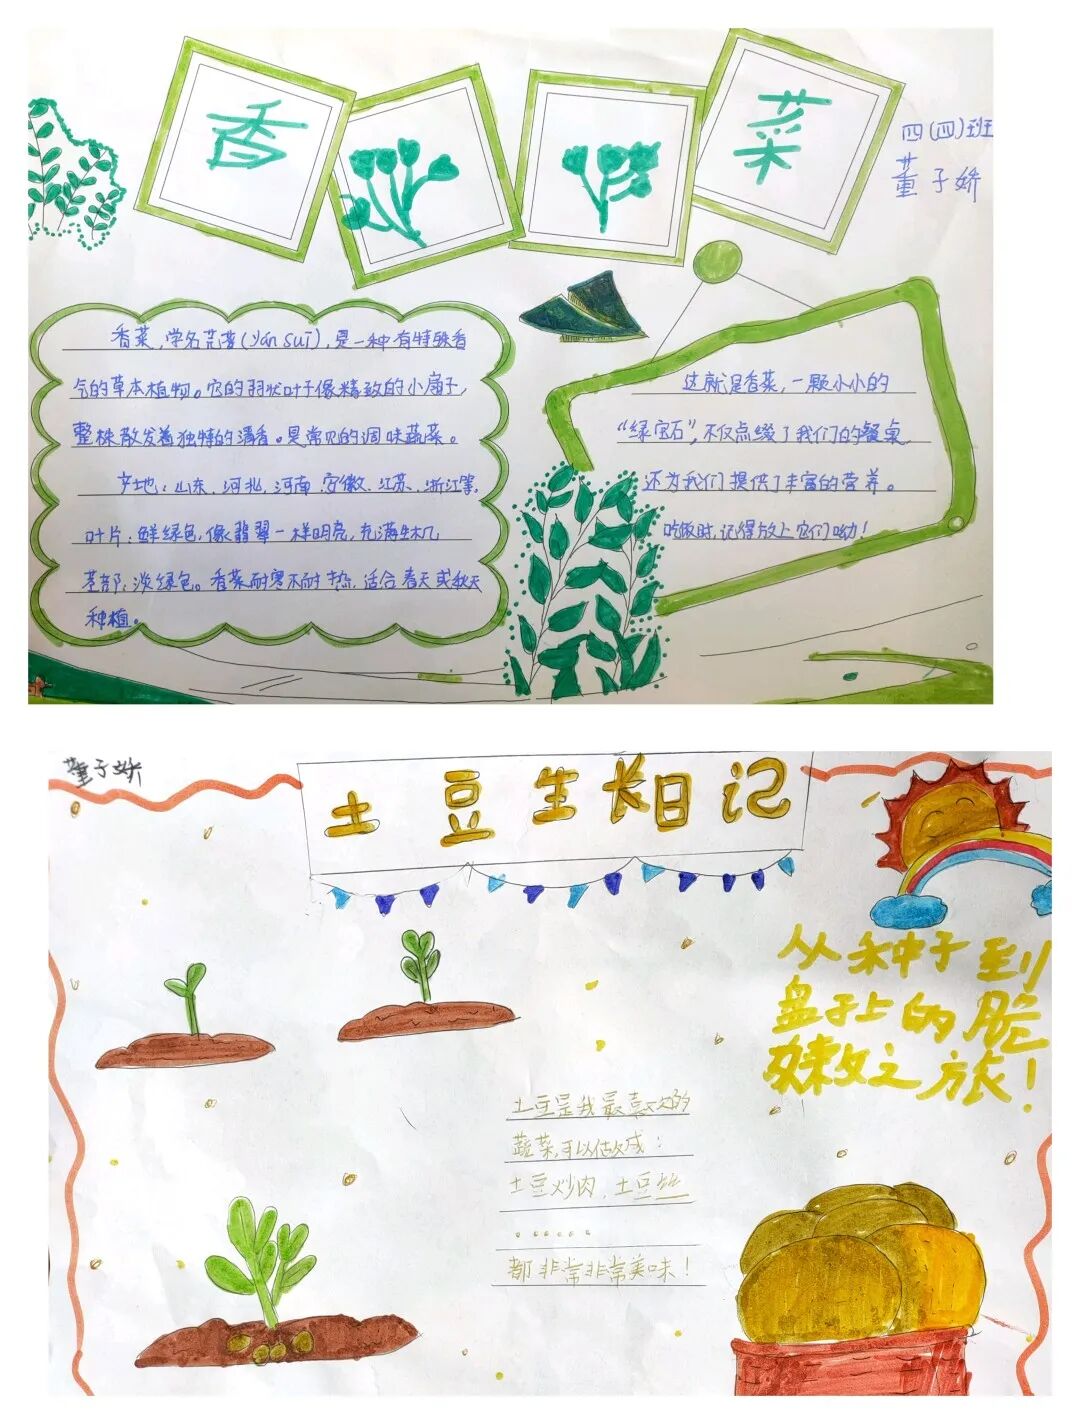 香 菜
四(四)班
董子娇
香菜,学名芫荽(yán suī),是一种有特殊香
气的草本植物。它的羽状叶子像精致的小扇子,
整株散发着独特的清香。是常见的调味蔬菜。
产地:山东、河北、河南、安徽、江苏、浙江等,
叶片:鲜绿色,像翡翠一样明亮,充满生机
茎部:淡绿色。香菜耐寒不耐热,适合春天或秋天
种植。
这就是香菜,一颗小小的
“绿宝石”,不仅点缀了我们的餐桌,
还为我们提供了丰富的营养。
吃饭时,记得放上它们呦!
董子娇
土豆生长日记
从种子到
盘子上的脆
嫩之旅!
土豆是我最喜欢的
蔬菜,可以做成:
土豆炒肉、土豆丝
……
都非常非常美味!